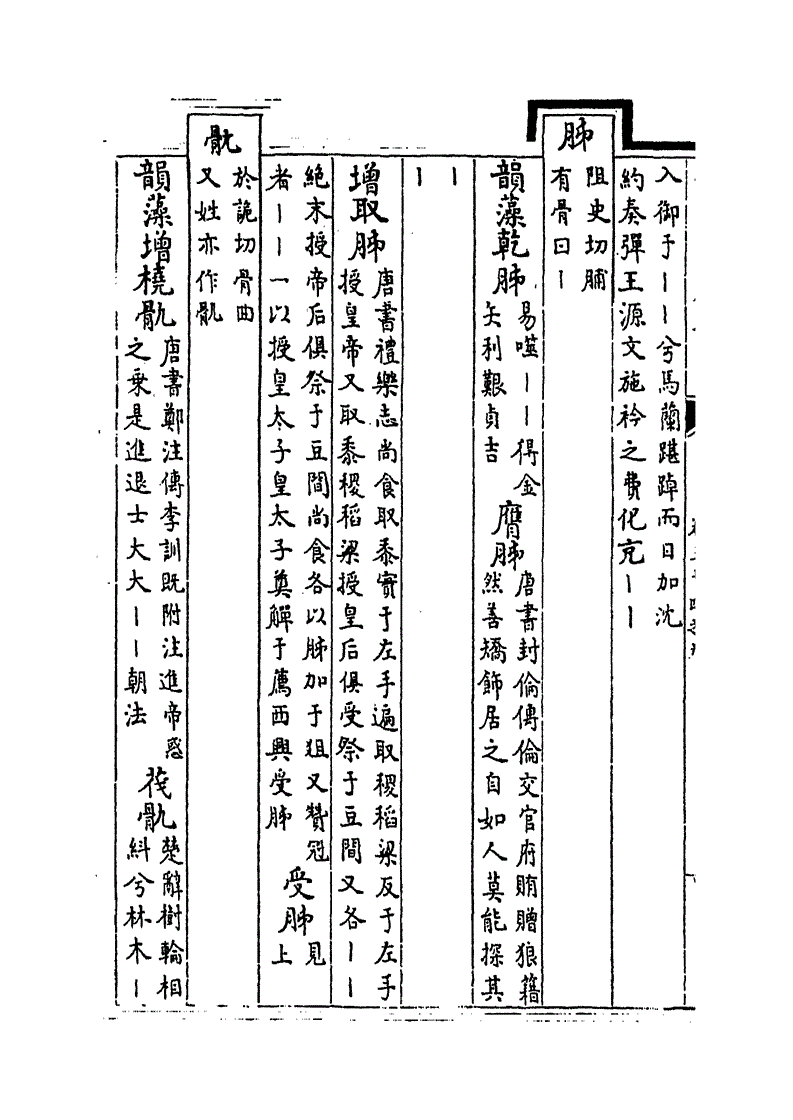 入御于丨丨兮馬蘭踸踔而日加沈
約奏彈王源文施衿之費化充丨丨
胏
阻史切脯
有骨曰丨
韻藻乾胏
易噬丨丨得金
矢利艱貞吉
膺胏
唐書封倫傳倫交官府賄贈狼籍
然善矯飾居之自如人莫能探其
丨
丨
增取胏
唐書禮樂志尚食取黍實于左手遍取稷稻梁反于左手
授皇帝又取黍稷稻梁授皇后俱受祭于豆間又各丨丨
絶末授帝后俱祭于豆間尚食各以胏加于俎又贊冠
者丨丨一以授皇太子皇太子奠觶于薦西興受胏
受胏
見
上
骫
於詭切骨曲
又姓亦作骩
韻藻增橈骩
唐書鄭注傳李訓既附注進帝惑
之乗是進退士大大丨丨朝法
茷骩
楚辭樹輪相
糾兮林木丨